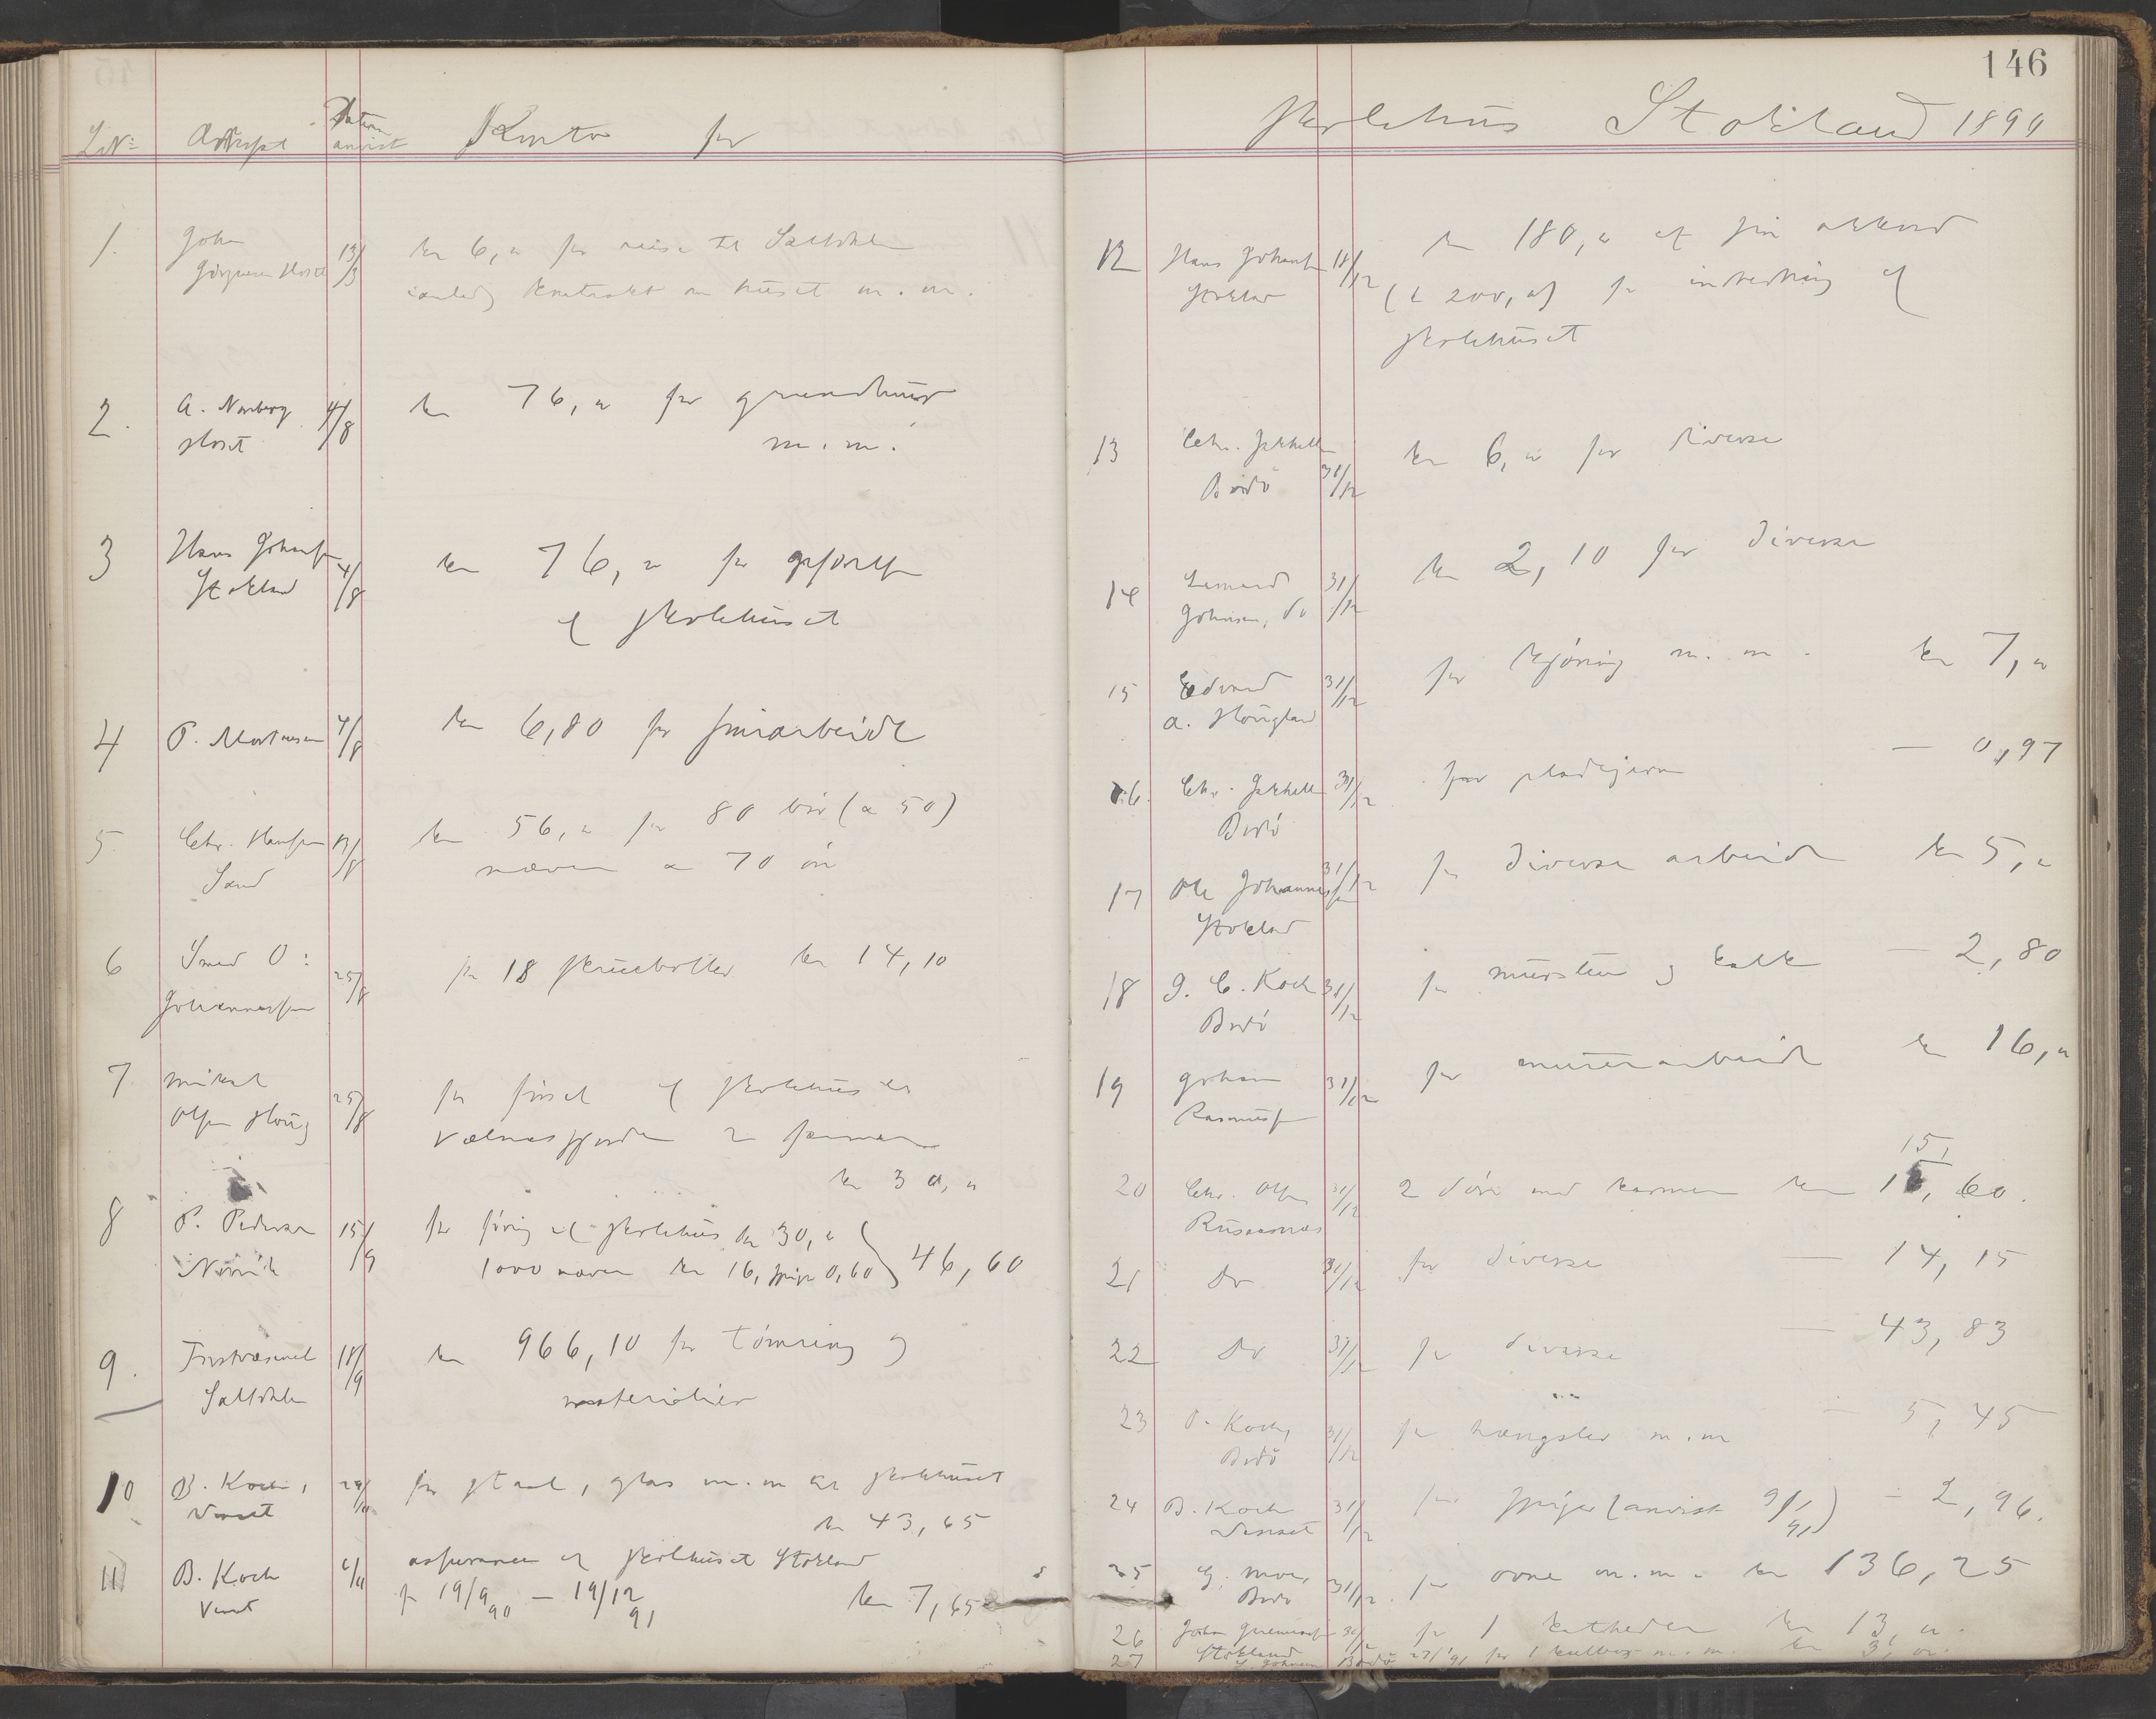 146
LNº Adresse Datum anvist Konto for
skolehus Stokland 1890
1. Johan 13/3 kr 6,„ for reise til Saltdalen
Jörgensen Hoset
kontrakt om huset m. m.
2. A. Norberg 4/8 kr 76,„ for grundmur
Hoset m. m.
3 Hans Johansen 4/8 kr 76,„ for
Stokland af skolehuset
4 P. Mortensen 4/8 kr 6,80 for smiarbeide
5 Chr. Hansen 13/8 kr 56,„ for 80 (a 50)
Sand næver a 70 öre
6 Smed O: 25/8 for 18 skruebolter kr 14,10
Johannessen
7 Mikal 25/8 for försel af skolehus til
Olsen Houg
kr 30,„
8 P. Pedersen 15/9 for föring af skolehus kr 30,„
Närvik 1000 næver kr 16, spiger 0,60 } 46,60
9. Forstvæsenet 18/9 kr 966,10 for tömring og
Saltdalen materialier
10 B. Koch, for staal, glas m.m til skolehuset
Venset kr 43,65
11 B. Koch assurance af skolehuset Stokland
Venset f 19/9 90 – 19/12 91 kr 7,65
12 Hans Johansen 18/12 kr 180,„ af sin akkord
Stokland (kr 200,„) for indredning af
skolehuset
13 Chr. Jakhelln 31/12 kr 6,„ for diverse
Bodö
14 Lennard 31/12 kr 2,10 for diverse
Johnsen, do
15 Edvard 31/12 for kjöring m. m. kr 7,„
A. Hougland
16. Chr. Jakhelln 31/12 for pladejern — 0,97
Bodö
17 Ole Johannessen 31/12 for diverse arbeide kr 5,„
Stokland
18 J. C. Koch 31/12 for mursten og kalk — 2,80
Bodö
19 Johan 31/12 for murerarbeide kr 16,„
Rasmussen
15,
20 Chr. Olsen 31/12 2 döre med karmen kr 15,60.
Rusaanes
21 Do 31/12 for diverse — 14,15
22 Do 31/12 for diverse — 43,83
23 P. Koch, 31/12 for hængsler m.m — 5,45
Bodö
24 B. Koch 31/12 for spiger (anvist 9/1 91) – 2,96.
Venset
25 G. Moe, 31/12 for ovne m.m. kr 136,25
Bodö
26 Johan 31/12 for 1 katheder kr 13,„.
Stokland
27 Bodö 27/1 91 for 1 m.m. kr 3,„.